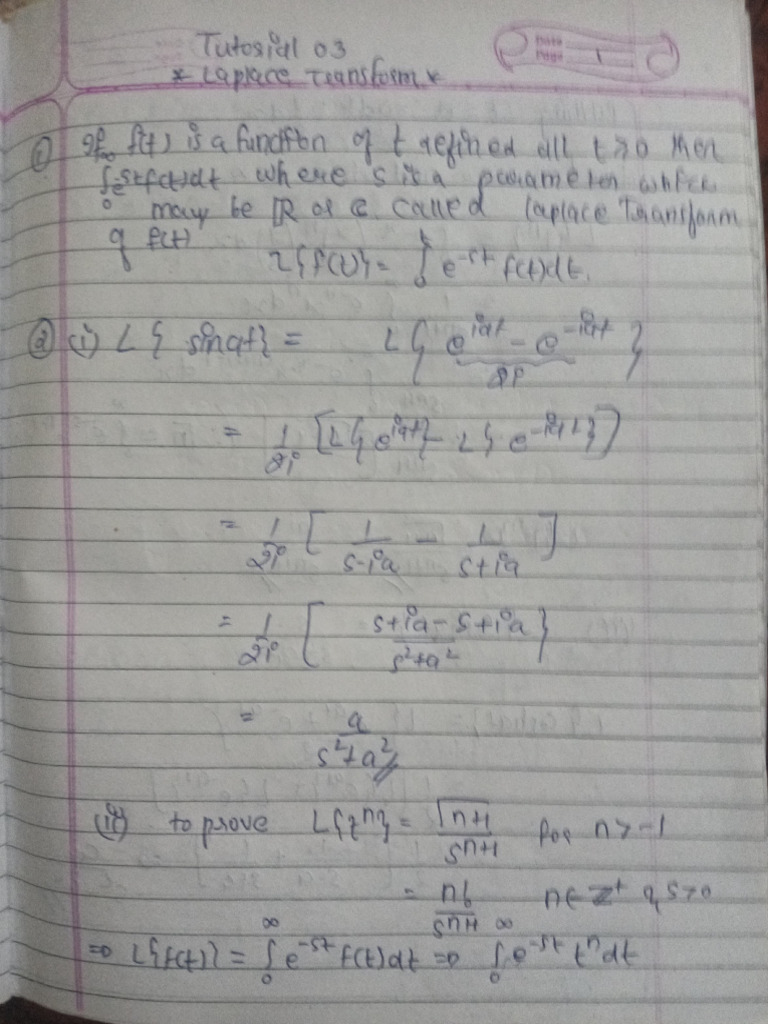 Tutorial 03
* Laplace Transform *
① If f(t) is a function of t defined all t>0 then
∫₀^∞ e^-st f(t)dt where s is a parameter which
may be ℝ or ℂ called Laplace Transform
of f(t)
L{f(t)} = ∫₀ e^-st f(t)dt.
② (i) L{ sinat} = L{ (e^iat - e^-iat)/2i }
= 1/2i [L{e^iat} - L{e^-iat}]
= 1/2i [ 1/(s-ia) - 1/(s+ia) ]
= 1/2i [ (s+ia-s+ia)/(s²+a²) }
= a/(s²+a²)
(ii) to prove L{t^n} = Γn+1/s^n+1 for n>-1
= n!/s^n+1 n∈ℤ⁺ & s>0
⇒ L{f(t)} = ∫₀^∞ e^-st f(t)dt ⇒ ∫₀^∞ e^-st t^n dt